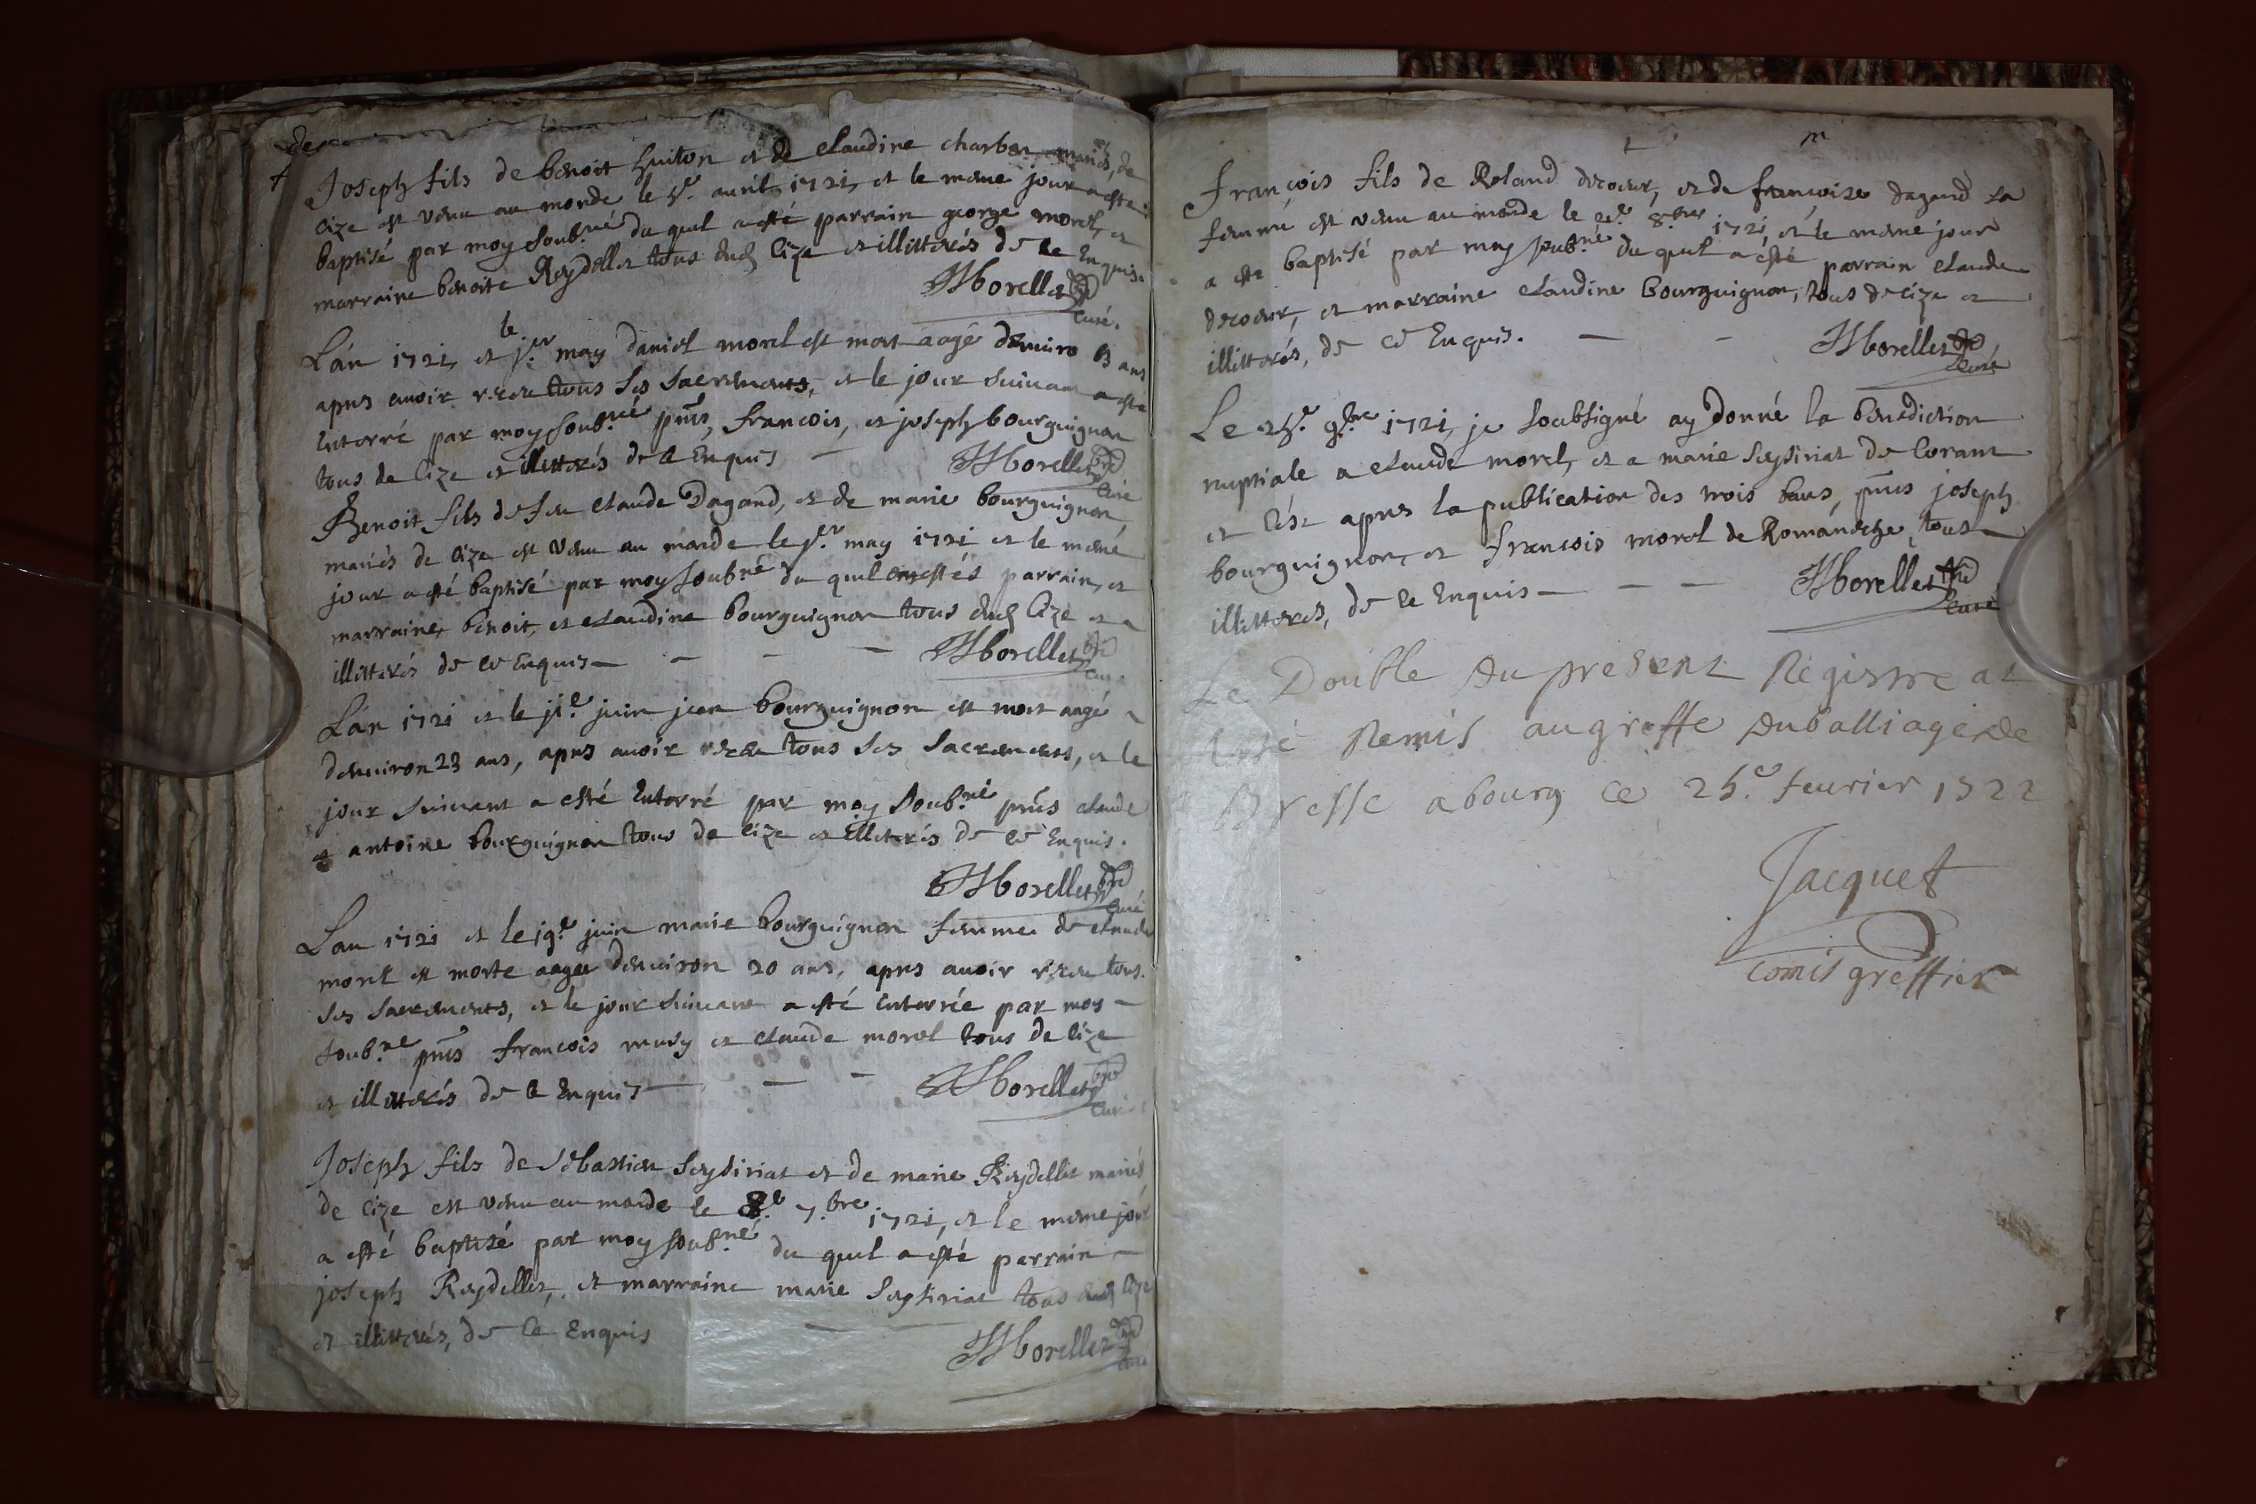 de
Joseph fils de benoit huiton et de claudine charbon mariés, de
cize est venu au monde le 5.e auril 1721, et le meme jour a esté
baptisé par moy soub.né du quel a esté parrain george morel, et
marraine benoite Reydellet tous dud cize et illitterés de ce Enquis
Hborellet pbre
curé.
L'an 1721, et le j.er may daniel morel est mort aagé denuiro 63 ans
apres auoir receu tous ses sacrements, et le jour suiuant a esté
Enterré par moy soub.né pnts, francois, et joseph bourguignon
tous de Cize et illitterés de ce Enquis
Hborellet pbre
Curé
Benoit fils de feu claude Dagand, et de marie bourguignon
mariés de cize est venu au monde le j.er may 1721 et le mémé
jour a esté baptisé par moy soub.né du quel ont estés parrain, et
marraine, benoit, et claudine bourguignon tous dud Cize et
illitterés de ce Enquis
Hborellet pbre
Cur
L'an 1721 et le ji.e juin jean bourguignon est mort aagé
denuiron 23 ans, apres auoir receu tous ses sacrements, et le
jour suiuant a esté Enterré par moy soub.né pnts claude
et antoine bourguignon tous de cize et Illiterés de ce Enquis.
Hborellet pbre
Curé
L'an 1721 et le 19.e juin marie bourguignon femme de claude
morel est morte aagée denuiron 20 ans, apres auoir receu tous
ses sacrements, et le jour suiuant a esté enterrée par moy
soub.né pnts francois musy et claude morel tous de cize
et illitterés de ce Enquis
Hborellet pbre
Curé
Joseph fils de sebastien seysiriat et de marie Reydellet mariés
de cize est venu au monde le 8.e 7.bre 1721, et le meme jour
a esté baptizé par moy soub.né du quel a esté parrain
joseph Reydellet, et marraine marie seysiriat tous dud cize
et illitterés, de ce Enquis
Hborellet pbre
curé
François fils de Roland decoeur, et de francoise dagand sa
femme est venu au monde le 8.bre 1721, et le meme jour
a esté baptisé par moy soub.né du quel a esté parrain claude
decoeur, et marraine claudine bourguignon, tous de cize et
illitterés, de ce Enquis.
Hborellet pbre
curé
Le 25.e 9.bre 1721, je soubsigné ay donné la benediction
nuptiale a claude morel, et a marie seysiriat de Corant
et c'est apres la publication des trois bans, pnts joseph
bourguignon, et francois morel de Románeche, tous
illitterés, de ce Enquis
Hborellet pbre
Curé
Le Double du present Registre at
Esté Remis au greffe du balliage de
Bresse a bourg ce 25.e feurier 1722
Jacquet
Comis greffier